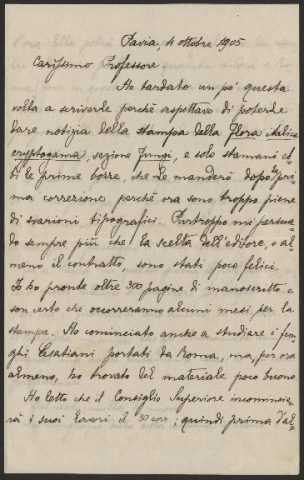 Pavia, 4 ottobre 1905
Carissimo Professore.
Ho tardato un po' questa
volta a scriverle perchè aspettavo di poterle
dare notizia della stampa della Flora italica
cryptogama, sezione Fungi, e solo stamani eb-
bi le prime bozze, che Le manderò dopo la pri-
ma correzione perchè ora sono troppo piene
di svarioni tipografici. Purtroppo mi persua-
do sempre più che la scelta dell'editore, o al-
meno il contratto, sono stati poco felici.
Io ho pronte oltre 300 pagine di manoscritto e
son certo che occorreranno alcuni mesi per la
stampa. Ho cominciato anche a studiare i fun-
ghi Cesatiani portati da Roma, ma, per ora
almeno, ho trovato del materiale poco buono.
Ho letto che il Consiglio Superiore incomince-
rà i suoi lavori il 30 corr.; quindi prima d'al-